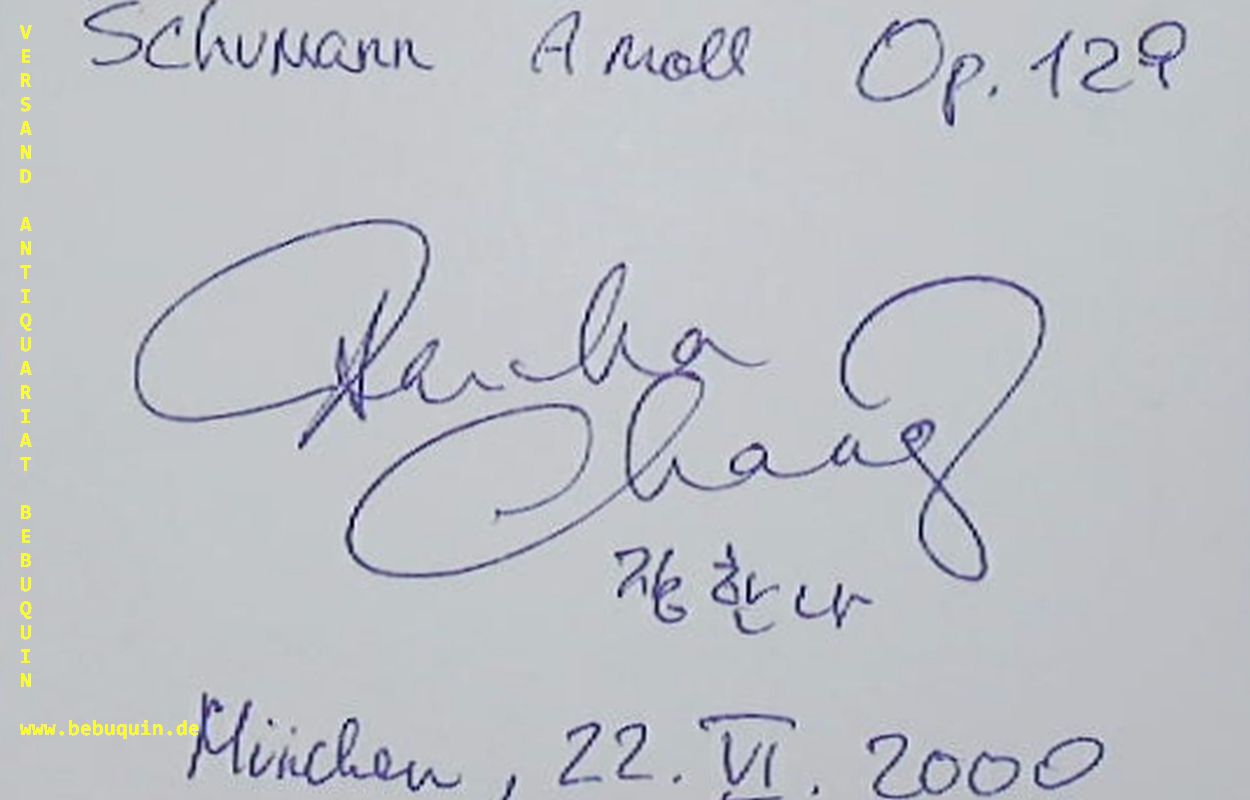 Schumann A moll Op. 129
Hanna
Chang
장한나
München, 22. VI. 2000
VERSAND ANTIQUARIAT BEBUQUIN
www.bebuquin.de